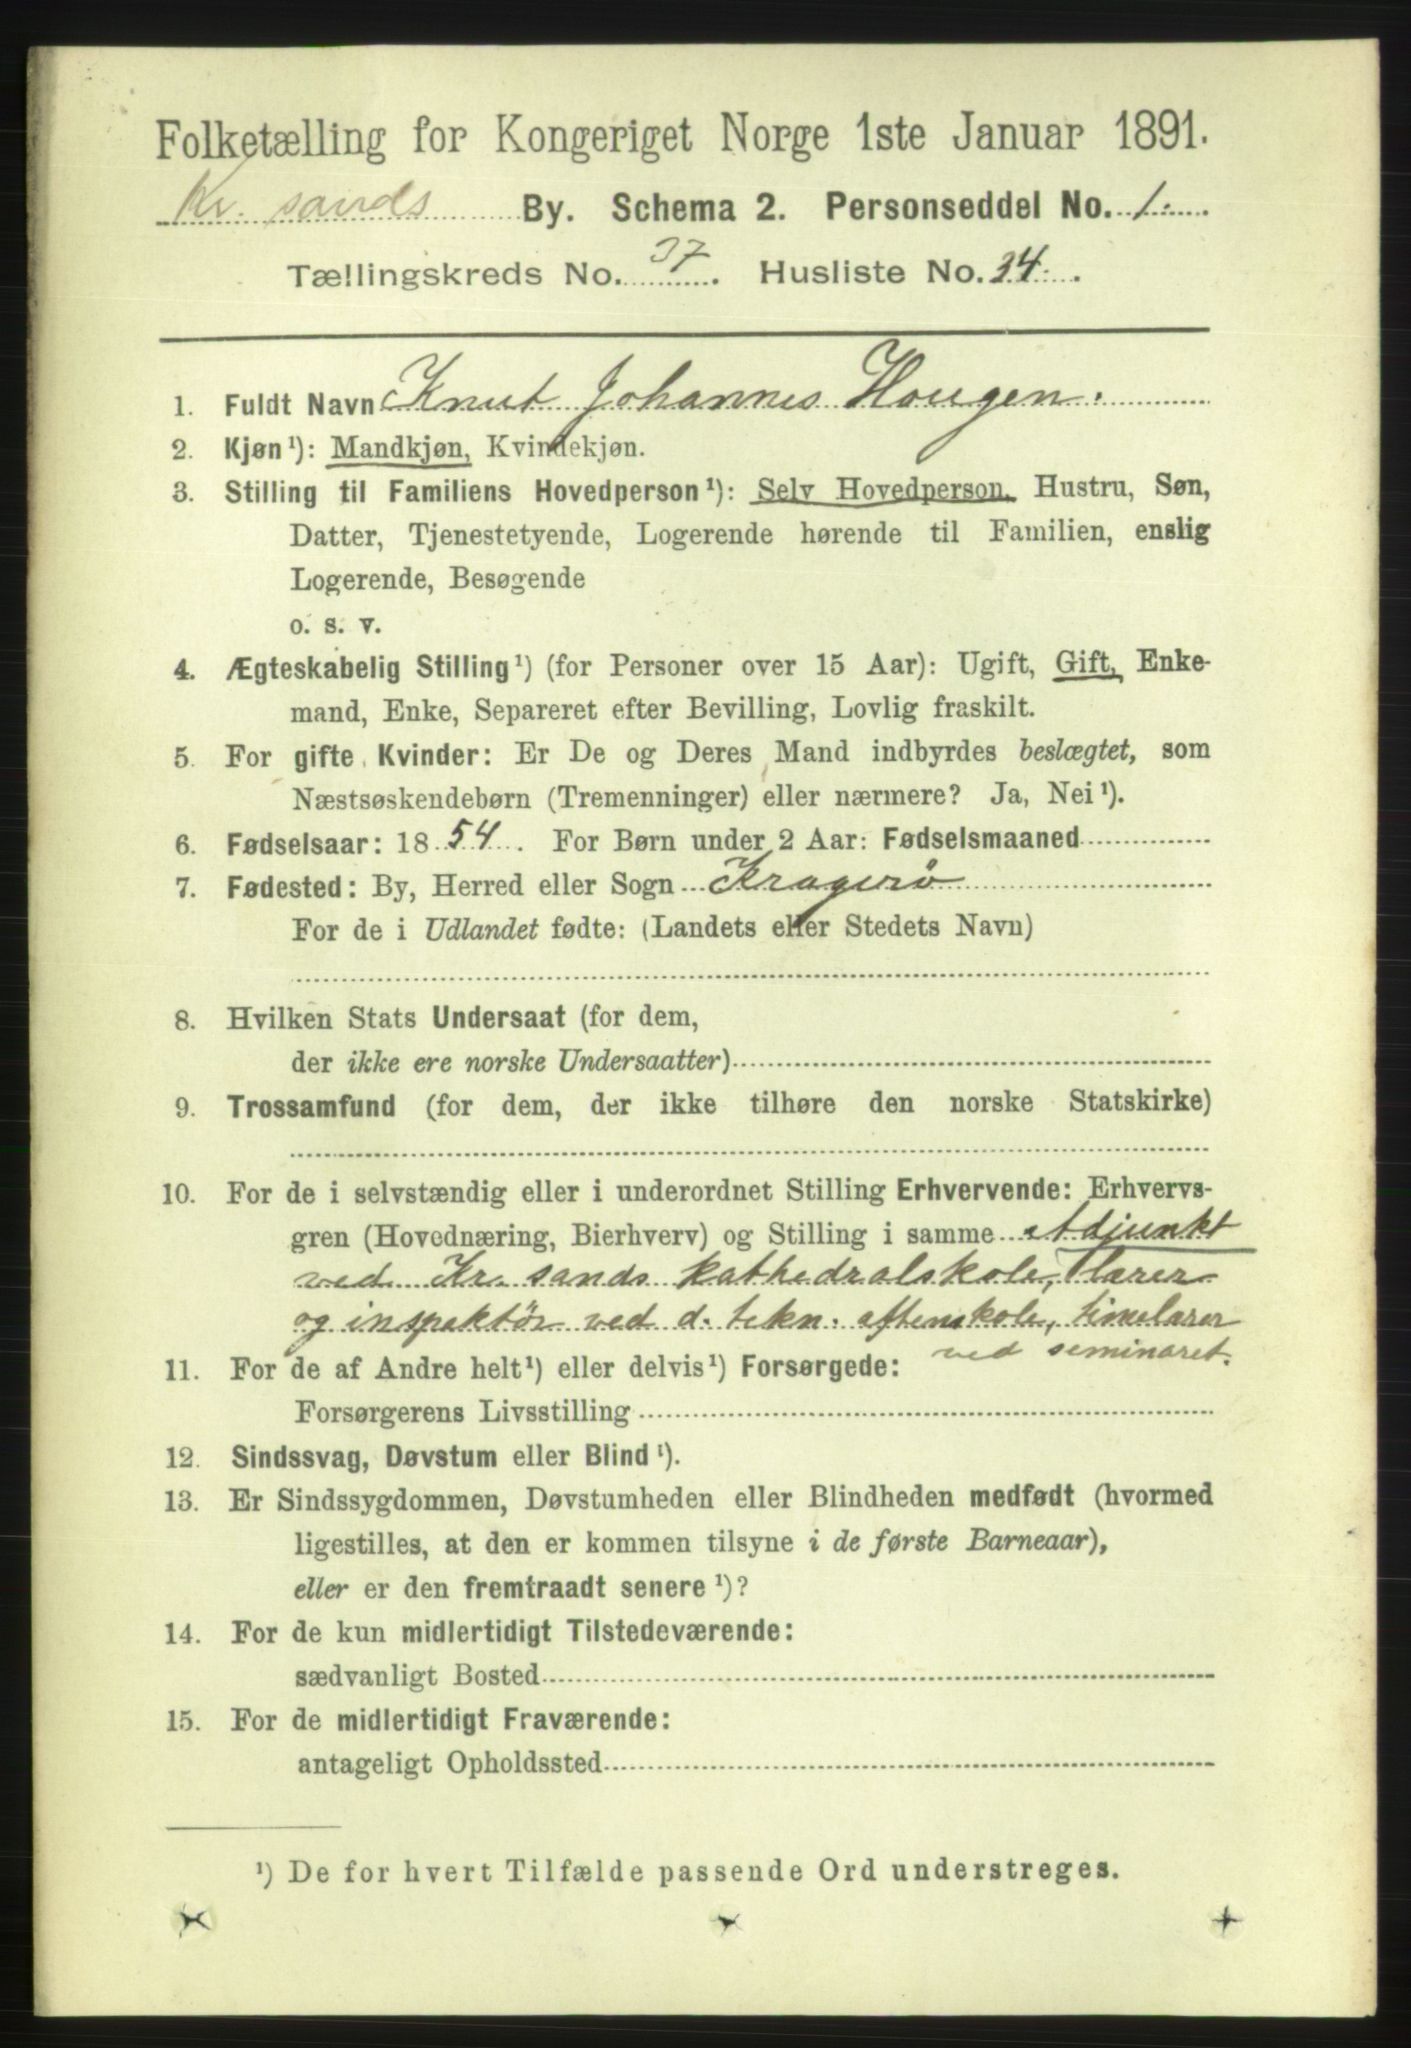 Folketælling for Kongeriget Norge 1ste Januar 1891.
Kr. sands By. Schema 2. Personseddel No. 1.
Tællingskreds No. 37. Husliste No. 34.
1. Fuldt Navn Knut Johannes Hougen.
2. Kjøn¹): Mandkjøn, Kvindekjøn.
3. Stilling til Familiens Hovedperson¹): Selv Hovedperson, Hustru, Søn,
Datter, Tjenestetyende, Logerende hørende til Familien, enslig
Logerende, Besøgende
o. s. v.
4. Ægteskabelig Stilling¹) (for Personer over 15 Aar): Ugift, Gift, Enke-
mand, Enke, Separeret efter Bevilling, Lovlig fraskilt.
5. For gifte Kvinder: Er De og Deres Mand indbyrdes beslægtet, som
Næstsøskendebørn (Tremenninger) eller nærmere? Ja, Nei¹).
6. Fødselsaar: 1854. For Børn under 2 Aar: Fødselsmaaned
7. Fødested: By, Herred eller Sogn Kragerö
For de i Udlandet fødte: (Landets eller Stedets Navn)
8. Hvilken Stats Undersaat (for dem,
der ikke ere norske Undersaatter)
9. Trossamfund (for dem, der ikke tilhøre den norske Statskirke)
10. For de i selvstændig eller i underordnet Stilling Erhvervende: Erhvervs-
gren (Hovednæring, Bierhverv) og Stilling i samme Adjunkt
ved Kr. sands kathedralskole, lærer
og inspektör ved d. tekn. aftenskole, timelærer
ved seminaret.
11. For de af Andre helt¹) eller delvis¹) Forsørgede:
Forsørgerens Livsstilling
12. Sindssvag, Døvstum eller Blind¹).
13. Er Sindssygdommen, Døvstumheden eller Blindheden medfødt (hvormed
ligestilles, at den er kommen tilsyne i de første Barneaar),
eller er den fremtraadt senere¹)?
14. For de kun midlertidigt Tilstedeværende:
sædvanligt Bosted
15. For de midlertidigt Fraværende:
antageligt Opholdssted
¹) De for hvert Tilfælde passende Ord understreges.